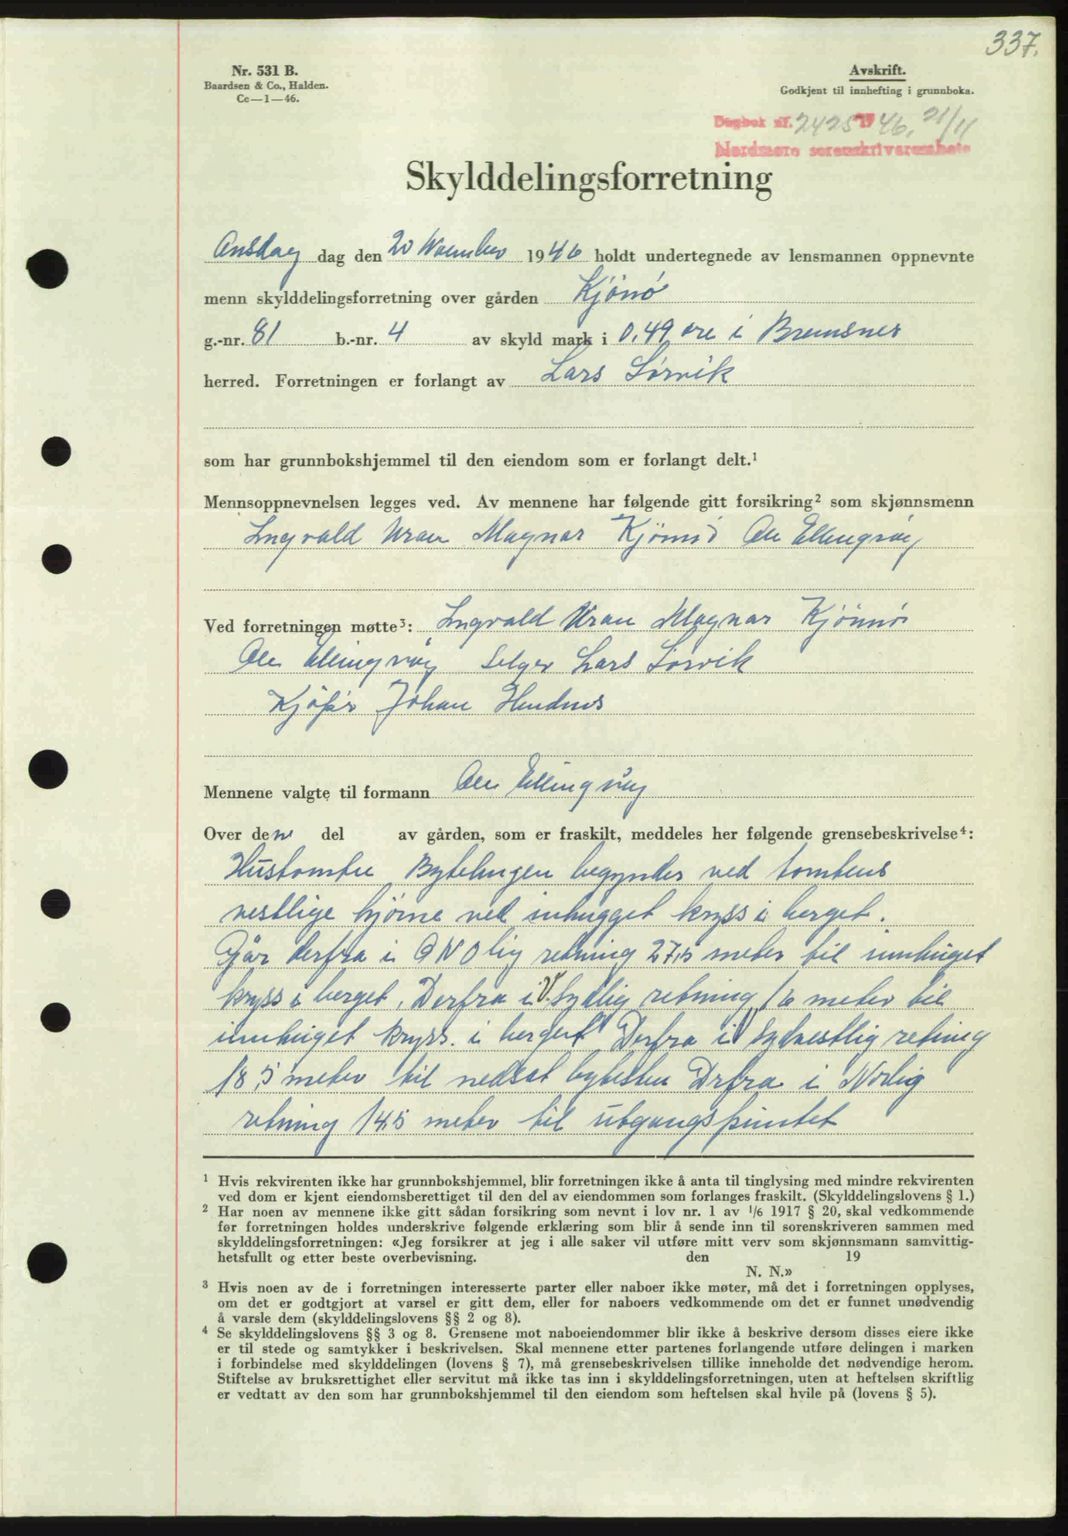 337.
Nr. 531 B.
Baardsen & Co., Halden.
Cc—1—46.
Avskrift.
Godkjent til innhefting i grunnboka.
Dagbok nr. 2425 1946, 21/11
Nordmøre sorenskrivarembete
Skylddelingsforretning
Onsdag dag den 20 November 1946 holdt undertegnede av lensmannen oppnevnte
menn skylddelingsforretning over gården Kjönnö
g.-nr. 81 b.-nr. 4 av skyld mark i 0,49 øre i Bremsnes
herred. Forretningen er forlangt av Lars Sørvik
som har grunnbokshjemmel til den eiendom som er forlangt delt.¹
Mennsoppnevnelsen legges ved. Av mennene har følgende gitt forsikring² som skjønnsmenn
Ingvald Vran Magnar Kjönnö Ole Ellingvåg
Ved forretningen møtte³: Ingvald Vran Magnar Kjönnö
Ole Ellingvåg Selger Lars Sørvik
Kjøper Johan
Mennene valgte til formann Ole Ellingvåg
Over den del av gården, som er fraskilt, meddeles her følgende grensebeskrivelse⁴:
Hustomten begynder ved tomtens
vestlige hjørne ved inhugget kryss i berget.
Går derfra i ONOlig retning 27,5 meter til innhuget
kryss i berget, Derfra i V. Sydlig retning 16 meter til
innhuget kryss. i berget Derfra i V Sydvestlig retning
18,5 meter til nedsat bytesten Drfra i Norlig
retning 14,5 meter til utgangspuntet
¹ Hvis rekvirenten ikke har grunnbokshjemmel, blir forretningen ikke å anta til tinglysing med mindre rekvirenten
ved dom er kjent eiendomsberettiget til den del av eiendommen som forlanges fraskilt. (Skylddelingslovens § 1.)
² Har noen av mennene ikke gitt sådan forsikring som nevnt i lov nr. 1 av ¹/₆ 1917 § 20, skal vedkommende
før forretningen holdes underskrive følgende erklæring som blir å sende inn til sorenskriveren sammen med
skylddelingsforretningen: «Jeg forsikrer at jeg i alle saker vil utføre mitt verv som skjønnsmann samvittig-
hetsfullt og etter beste overbevisning. den 19
N. N.»
³ Hvis noen av de i forretningen interesserte parter eller naboer ikke møter, må det i forretningen opplyses,
om det er godtgjort at varsel er gitt dem, eller for naboers vedkommende om det er funnet unødvendig
å varsle dem (skylddelingslovens §§ 2 og 8).
⁴ Se skylddelingslovens §§ 3 og 8. Grensene mot naboeiendommer blir ikke å beskrive dersom disses eiere ikke
er til stede og samtykker i beskrivelsen. Skal mennene etter partenes forlangende utføre delingen i marken
i forbindelse med skylddelingen (lovens § 7), må grensebeskrivelsen tillike inneholde det nødvendige herom.
Stiftelse av bruksrettighet eller servitut må ikke tas inn i skylddelingsforretningen, uten at heftelsen skriftlig
er vedtatt av den som har grunnbokshjemmel til den eiendom som heftelsen skal hvile på (lovens § 5).